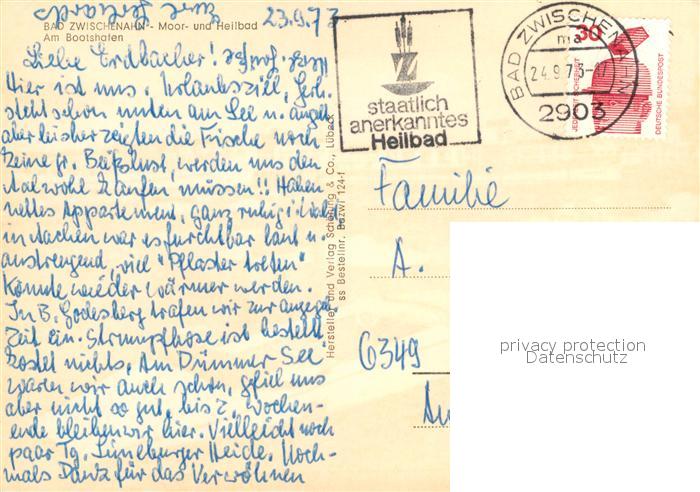 23.9.73
BAD ZWISCHENAHN - Moor- und Heilbad
Am Bootshafen
Liebe Erdbacher!
Hier ist uns. Urlaubsziel, Gerh.
steht schon unten am See u. angelt
aber leider zeigten die Fische noch
keine gr. Beißlust, werden uns den
Aal wohl kaufen müssen!! Haben
nettes Appartement, ganz ruhig
in Aachen war es furchtbar laut u.
anstrengend, viel "Pflaster treten"
könnte wieder wärmer werden.
In B. Godesberg trafen wir zur angegeb.
Zeit ein. Strumpfhose ist bestellt
kostet nichts. Am Dümmer See
waren wir auch schon, gefiel uns
aber nicht so gut, bis z. Wochen-
ende bleiben wir hier. Vielleicht noch
paar Tg. Lüneburger Heide. Noch-
mals Dank für das Verwöhnen
Eure Gerhards
Hersteller und Verlag Schöning & Co., Lübeck
ss Bestellnr. Bazwi 124-f
staatlich
anerkanntes
Heilbad
BAD ZWISCHENAHN
ma
24.9.73
2903
30
JEDERZEIT SICHERHEIT
DEUTSCHE BUNDESPOST
Familie
A.
6349
privacy protection
Datenschutz